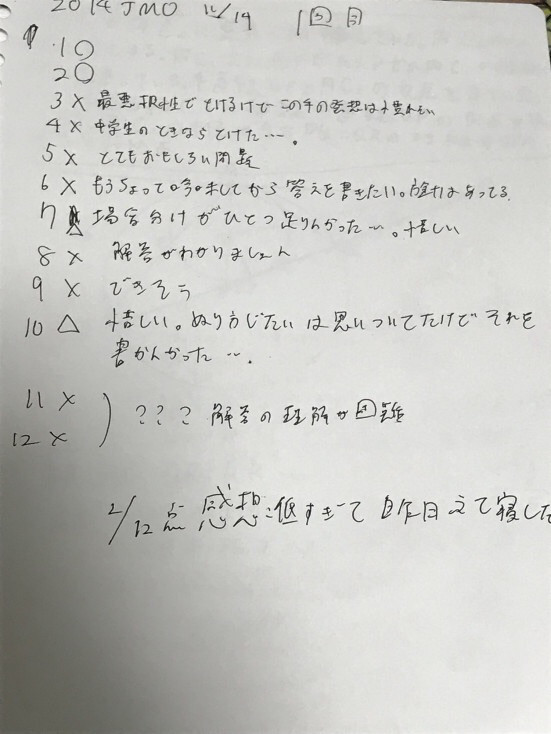 2014 JMO 12/14 1回目
1 ○
2 ○
3 × 最悪 根性でとけるけど この手の発想は
4 × 中学生のときならとけた…。
5 × とてもおもしろい問題
6 × もうちょっと吟味してから答えを書きたい。方針はあってる
7 △ 場合分けがひとつ足りんかった…。惜しい
8 × 解答がわかりました
9 × できそう
10 △ 惜しい。ぬり方じたいは思いついてたけど それを
書かんかった…。
11 ×
12 × ) ? ? ? 解答の理解が困難
2/12点 感想:低すぎて 昨日 て寝した